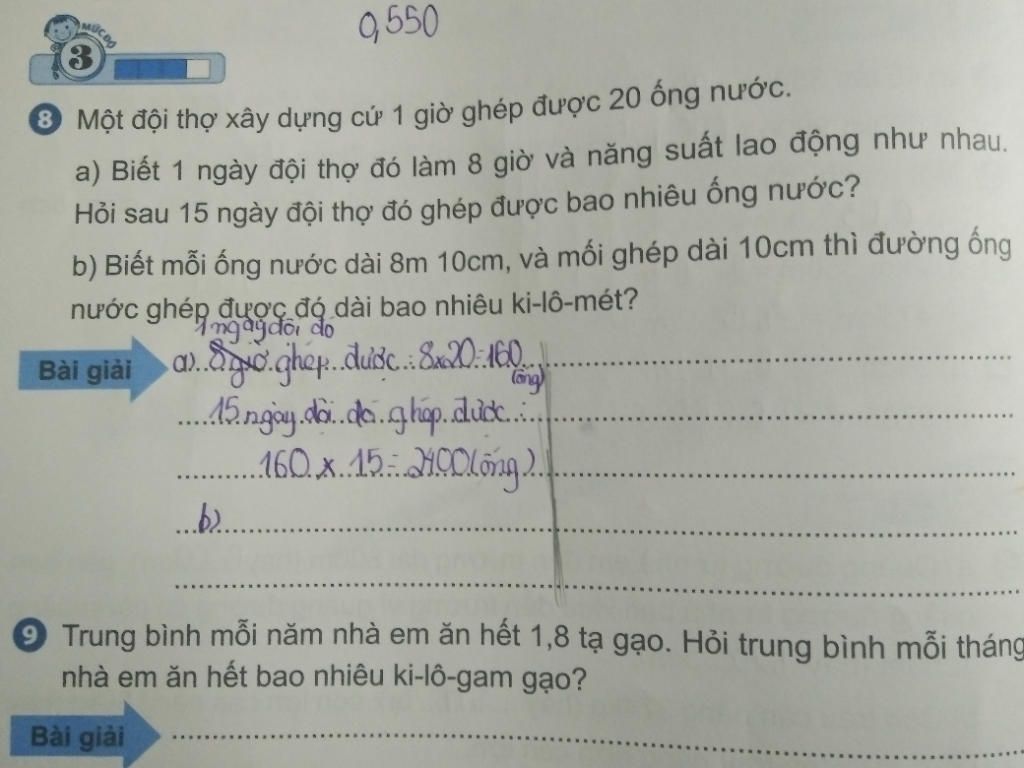 0,550
MỨC ĐỘ
3
8 Một đội thợ xây dựng cứ 1 giờ ghép được 20 ống nước.
a) Biết 1 ngày đội thợ đó làm 8 giờ và năng suất lao động như nhau.
Hỏi sau 15 ngày đội thợ đó ghép được bao nhiêu ống nước?
b) Biết mỗi ống nước dài 8m 10cm, và mối ghép dài 10cm thì đường ống
nước ghép được đó dài bao nhiêu ki-lô-mét?
1 ngày đội đó
Bài giải a) 8 giờ ghép được : 8x20=160
(ống)
15 ngày đội đó ghép được :
160 x 15 = 2400 (ống)
b)
9 Trung bình mỗi năm nhà em ăn hết 1,8 tạ gạo. Hỏi trung bình mỗi tháng
nhà em ăn hết bao nhiêu ki-lô-gam gạo?
Bài giải